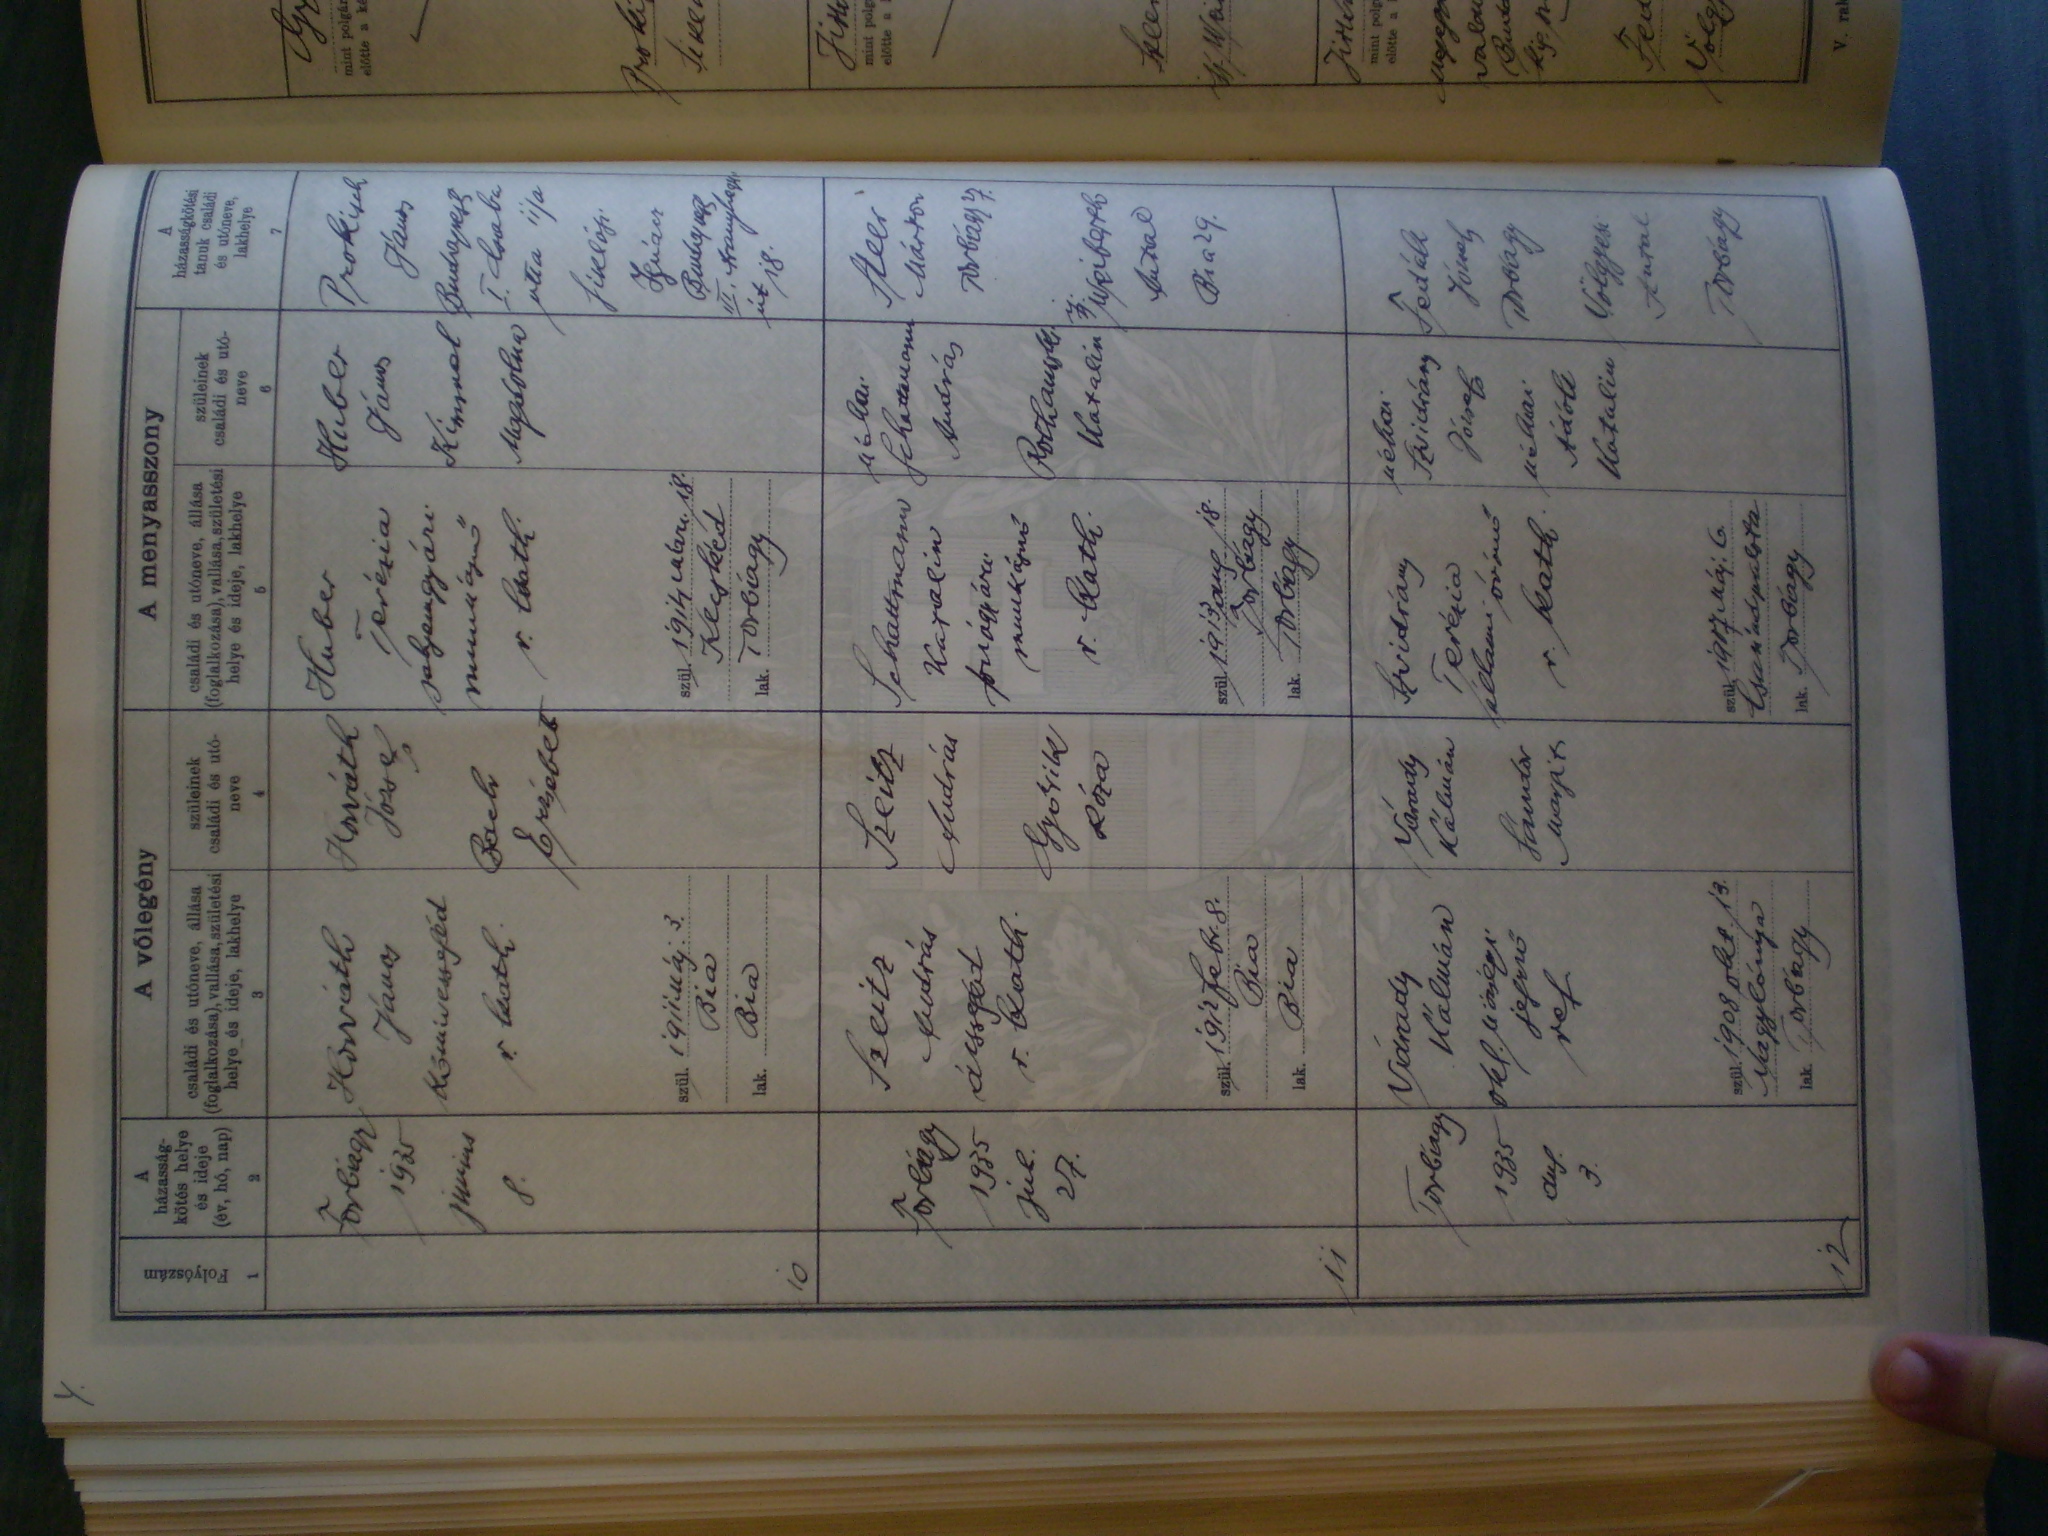 4.
Folyószám
1
A
házasság-
kötés helye
és ideje
(év, hó, nap)
2
A vőlegény
családi és utóneve, állása
(foglalkozása), vallása, születési
helye és ideje, lakhelye
3
szüleinek
családi és utó-
neve
4
A menyasszony
családi és utóneve, állása
(foglalkozása), vallása, születési
helye és ideje, lakhelye
5
szüleinek
családi és utó-
neve
6
A
házasságkötési
tanuk családi
és utóneve,
lakhelye
7
10
Torbágy
1935
junius
8.
Horváth
János
kőmivessegéd
r. kath.
szül. 1911 máj. 3.
Bia
lak. Bia
Horváth
József
Bach
Erzsébet
Huber
Terézia
munkásnő
r. kath.
szül. 1914 18.
Kecskéd
lak. Torbágy
Huber
János
Kimmel
Magdolna
Prokisch
János
Budapest
I. Csaba
utca 11/a
Siklósi
Ignác
Budapest
III.
út 18.
11
Torbágy
1935
jul.
27.
Szeitz
András
ácssegéd
r. kath.
szül. 1912 febr. 8.
Bia
lak. Bia
Szeitz
András
Győrik
Róza
Schattmann
Katalin
fonógyári
munkásnő
r. kath.
szül. 1913 aug. 18.
Torbágy
lak. Torbágy
néhai
Schattmann
András
Katalin
Márton
Torbágy
Antal
Bia 29.
12
Torbágy
1935
aug.
3.
Várady
Kálmán
okl. községi
jegyző
ref.
szül. 1908 okt. 13.
Nagylónya
lak. Torbágy
Várady
Kálmán
Sándor
Margit
Szvidrány
Terézia
állami óvónő
r. kath.
szül. 1907 máj. 6.
Csanádpalota
lak. Torbágy
néhai
Szvidrány
József
néhai
Katalin
József
Torbágy
Völgyesi
Antal
Torbágy
mint polgár
előtte a
Prokis
Sikl
mint polg
előtte a
mint polg
előtte a
Völgy
V. rak